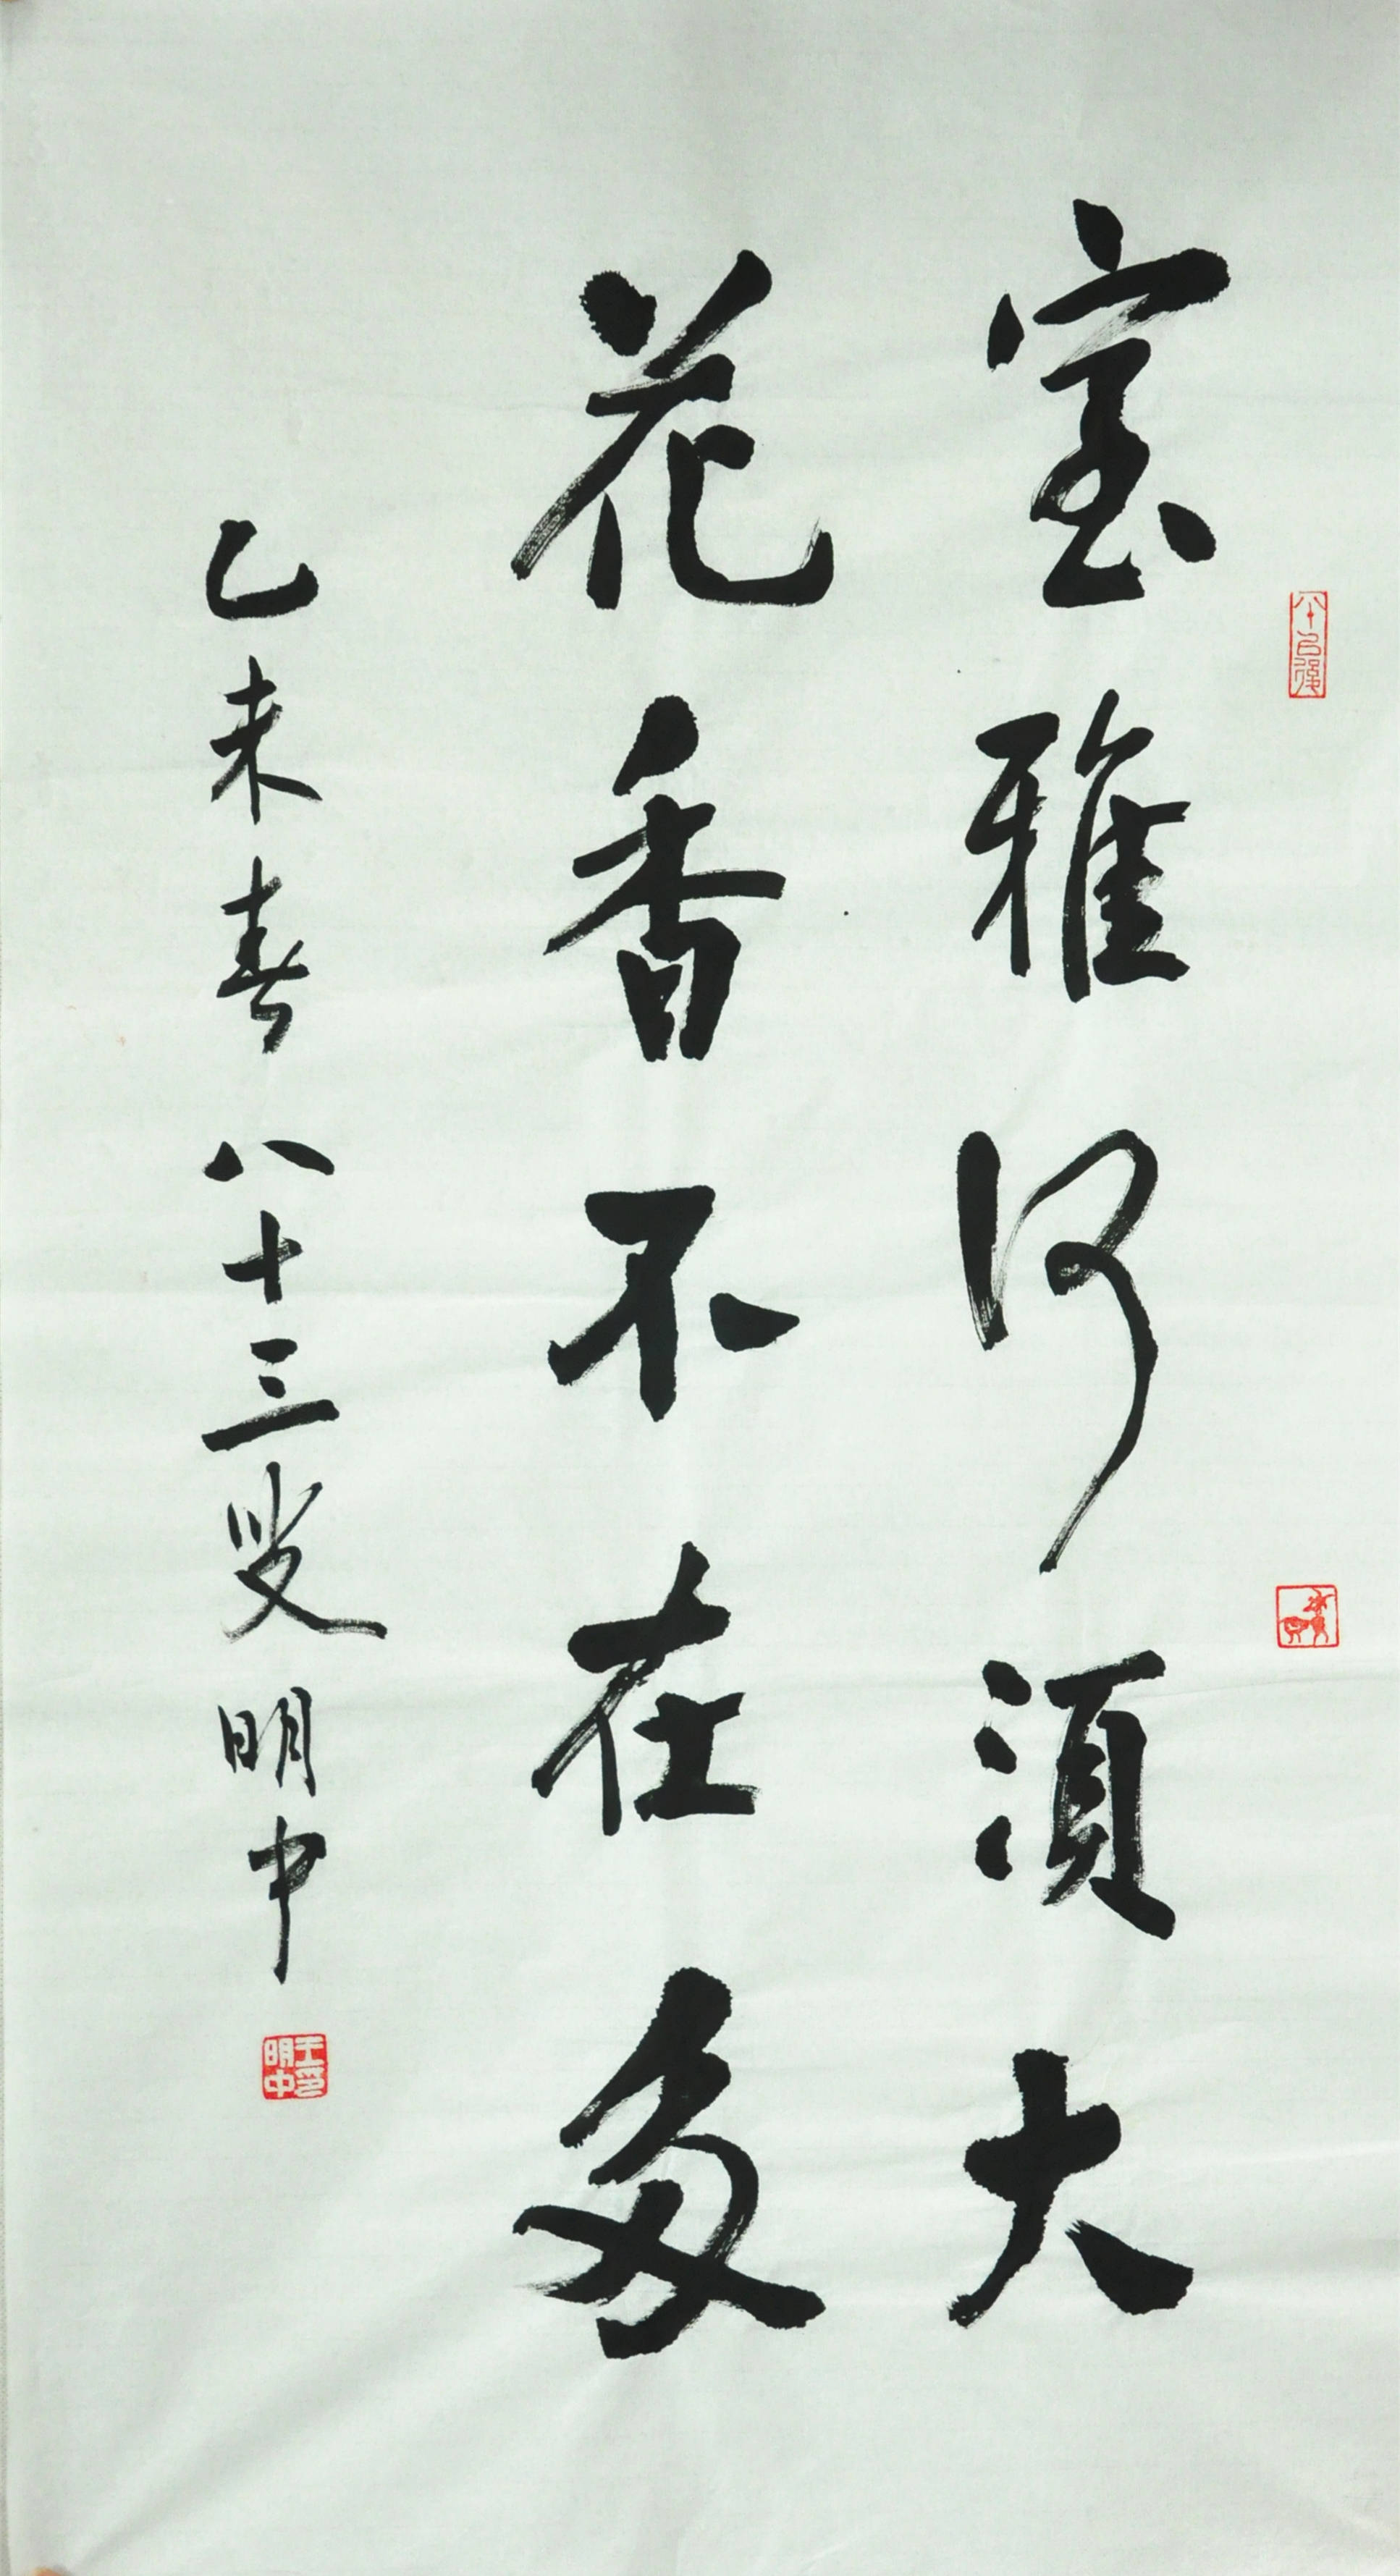 室雅何须大
花香不在多
乙未春 八十三叟 明中
八十以后
王明中印